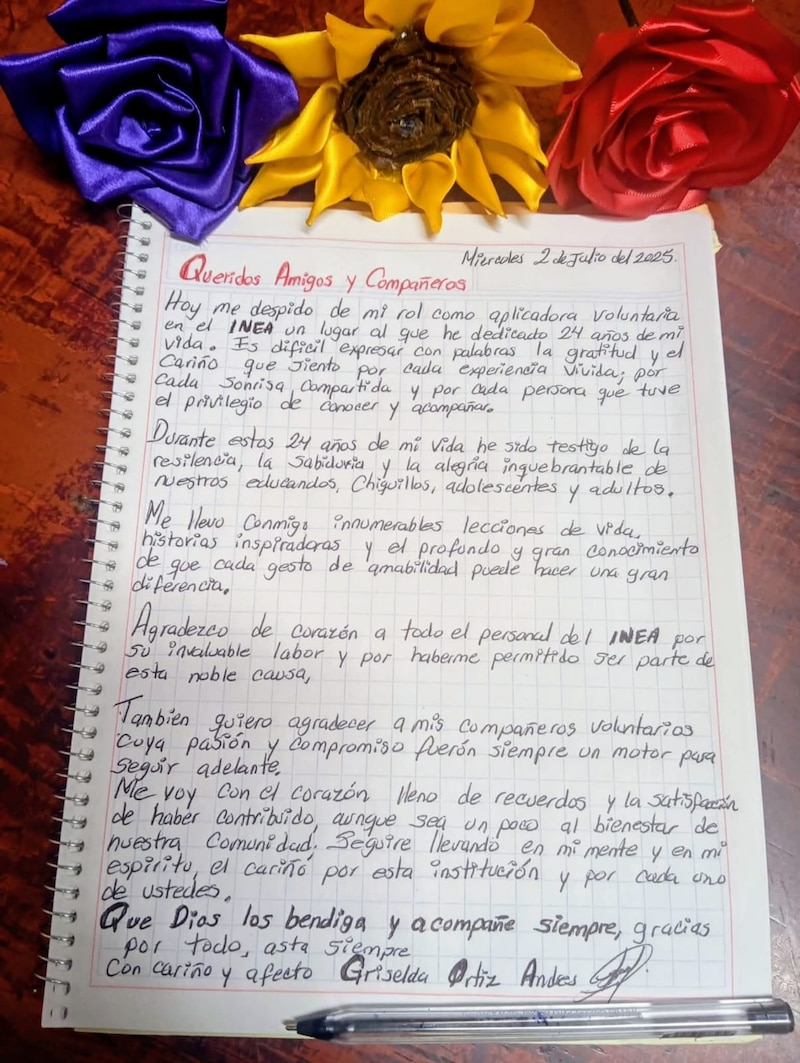 Miercoles 2 de Julio del 2025.
Queridos Amigos y Compañeros
Hoy me despido de mi rol como aplicadora voluntaria
en el INEA un lugar al que he dedicado 24 años de mi
vida. Es dificil expresar con palabras la gratitud y el
Cariño que siento por cada experiencia vivida; por
cada sonrisa compartida y por cada persona que tuve
el privilegio de conocer y acompañar.
Durante estos 24 años de mi vida he sido testigo de la
resilencia, la sabiduria y la alegria inquebrantable de
nuestros educandos, Chiquillos, adolescentes y adultos.
Me llevo Conmigo innumerables lecciones de vida,
historias inspiradoras y el profundo y gran conocimiento
de que cada gesto de amabilidad puede hacer una gran
diferencia.
Agradezco de corazón a todo el personal del INEA por
su invaluable labor y por haberme permitido ser parte de
esta noble causa,
Tambien quiero agradecer a mis compañeros voluntarios
cuya pasión y compromiso fuerón siempre un motor para
seguir adelante.
Me voy con el corazón lleno de recuerdos y la satisfacción
de haber contribuido, aunque sea un poco al bienestar de
nuestra Comunidad. Seguire llevando en mi mente y en mi
espiritu, el cariño por esta institución y por cada uno
de ustedes.
Que Dios los bendiga y acompañe siempre, gracias
por todo, asta siempre
Con cariño y afecto Griselda Ortiz Andres